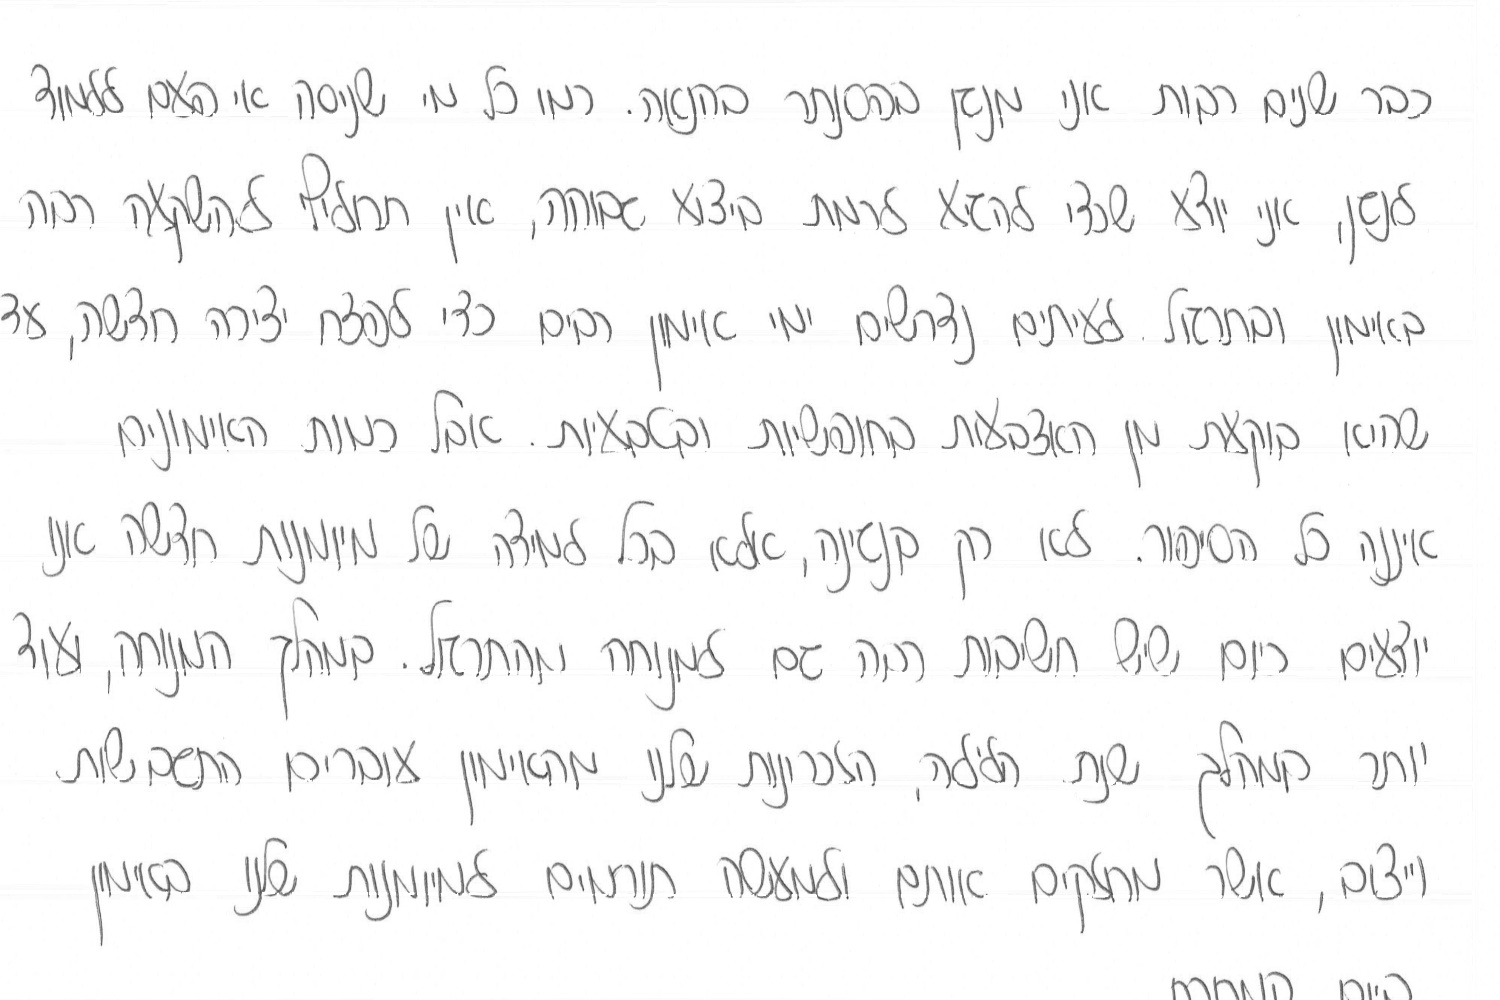 כבר שנים רבות אני מנגן בפסנתר בהנאה. כמו כל מי שניסה אי פעם ללמוד
לנגן, אני יודע שכדי להגיע לרמת ביצוע גבוהה, אין תחליף להשקעה רבה
באימון ובתרגול. לעיתים נדרשים ימי אימון רבים כדי לפצח יצירה חדשה, עד
שהיא בוקעת מן האצבעות בחופשיות ובטבעיות. אבל כמות האימונים
איננה כל הסיפור. לא רק בנגינה, אלא בכל למידה של מיומנות חדשה אנו
יודעים כיום שיש חשיבות רבה גם למנוחה מהתרגול. במהלך המנוחה, ועוד
יותר במהלך שנת הלילה, הזכרונות שלנו מהאימון עוברים התגבשות
וייצוב, אשר מחזקים אותם ולמעשה תורמים למיומנות שלנו באימון
ביום המחרת